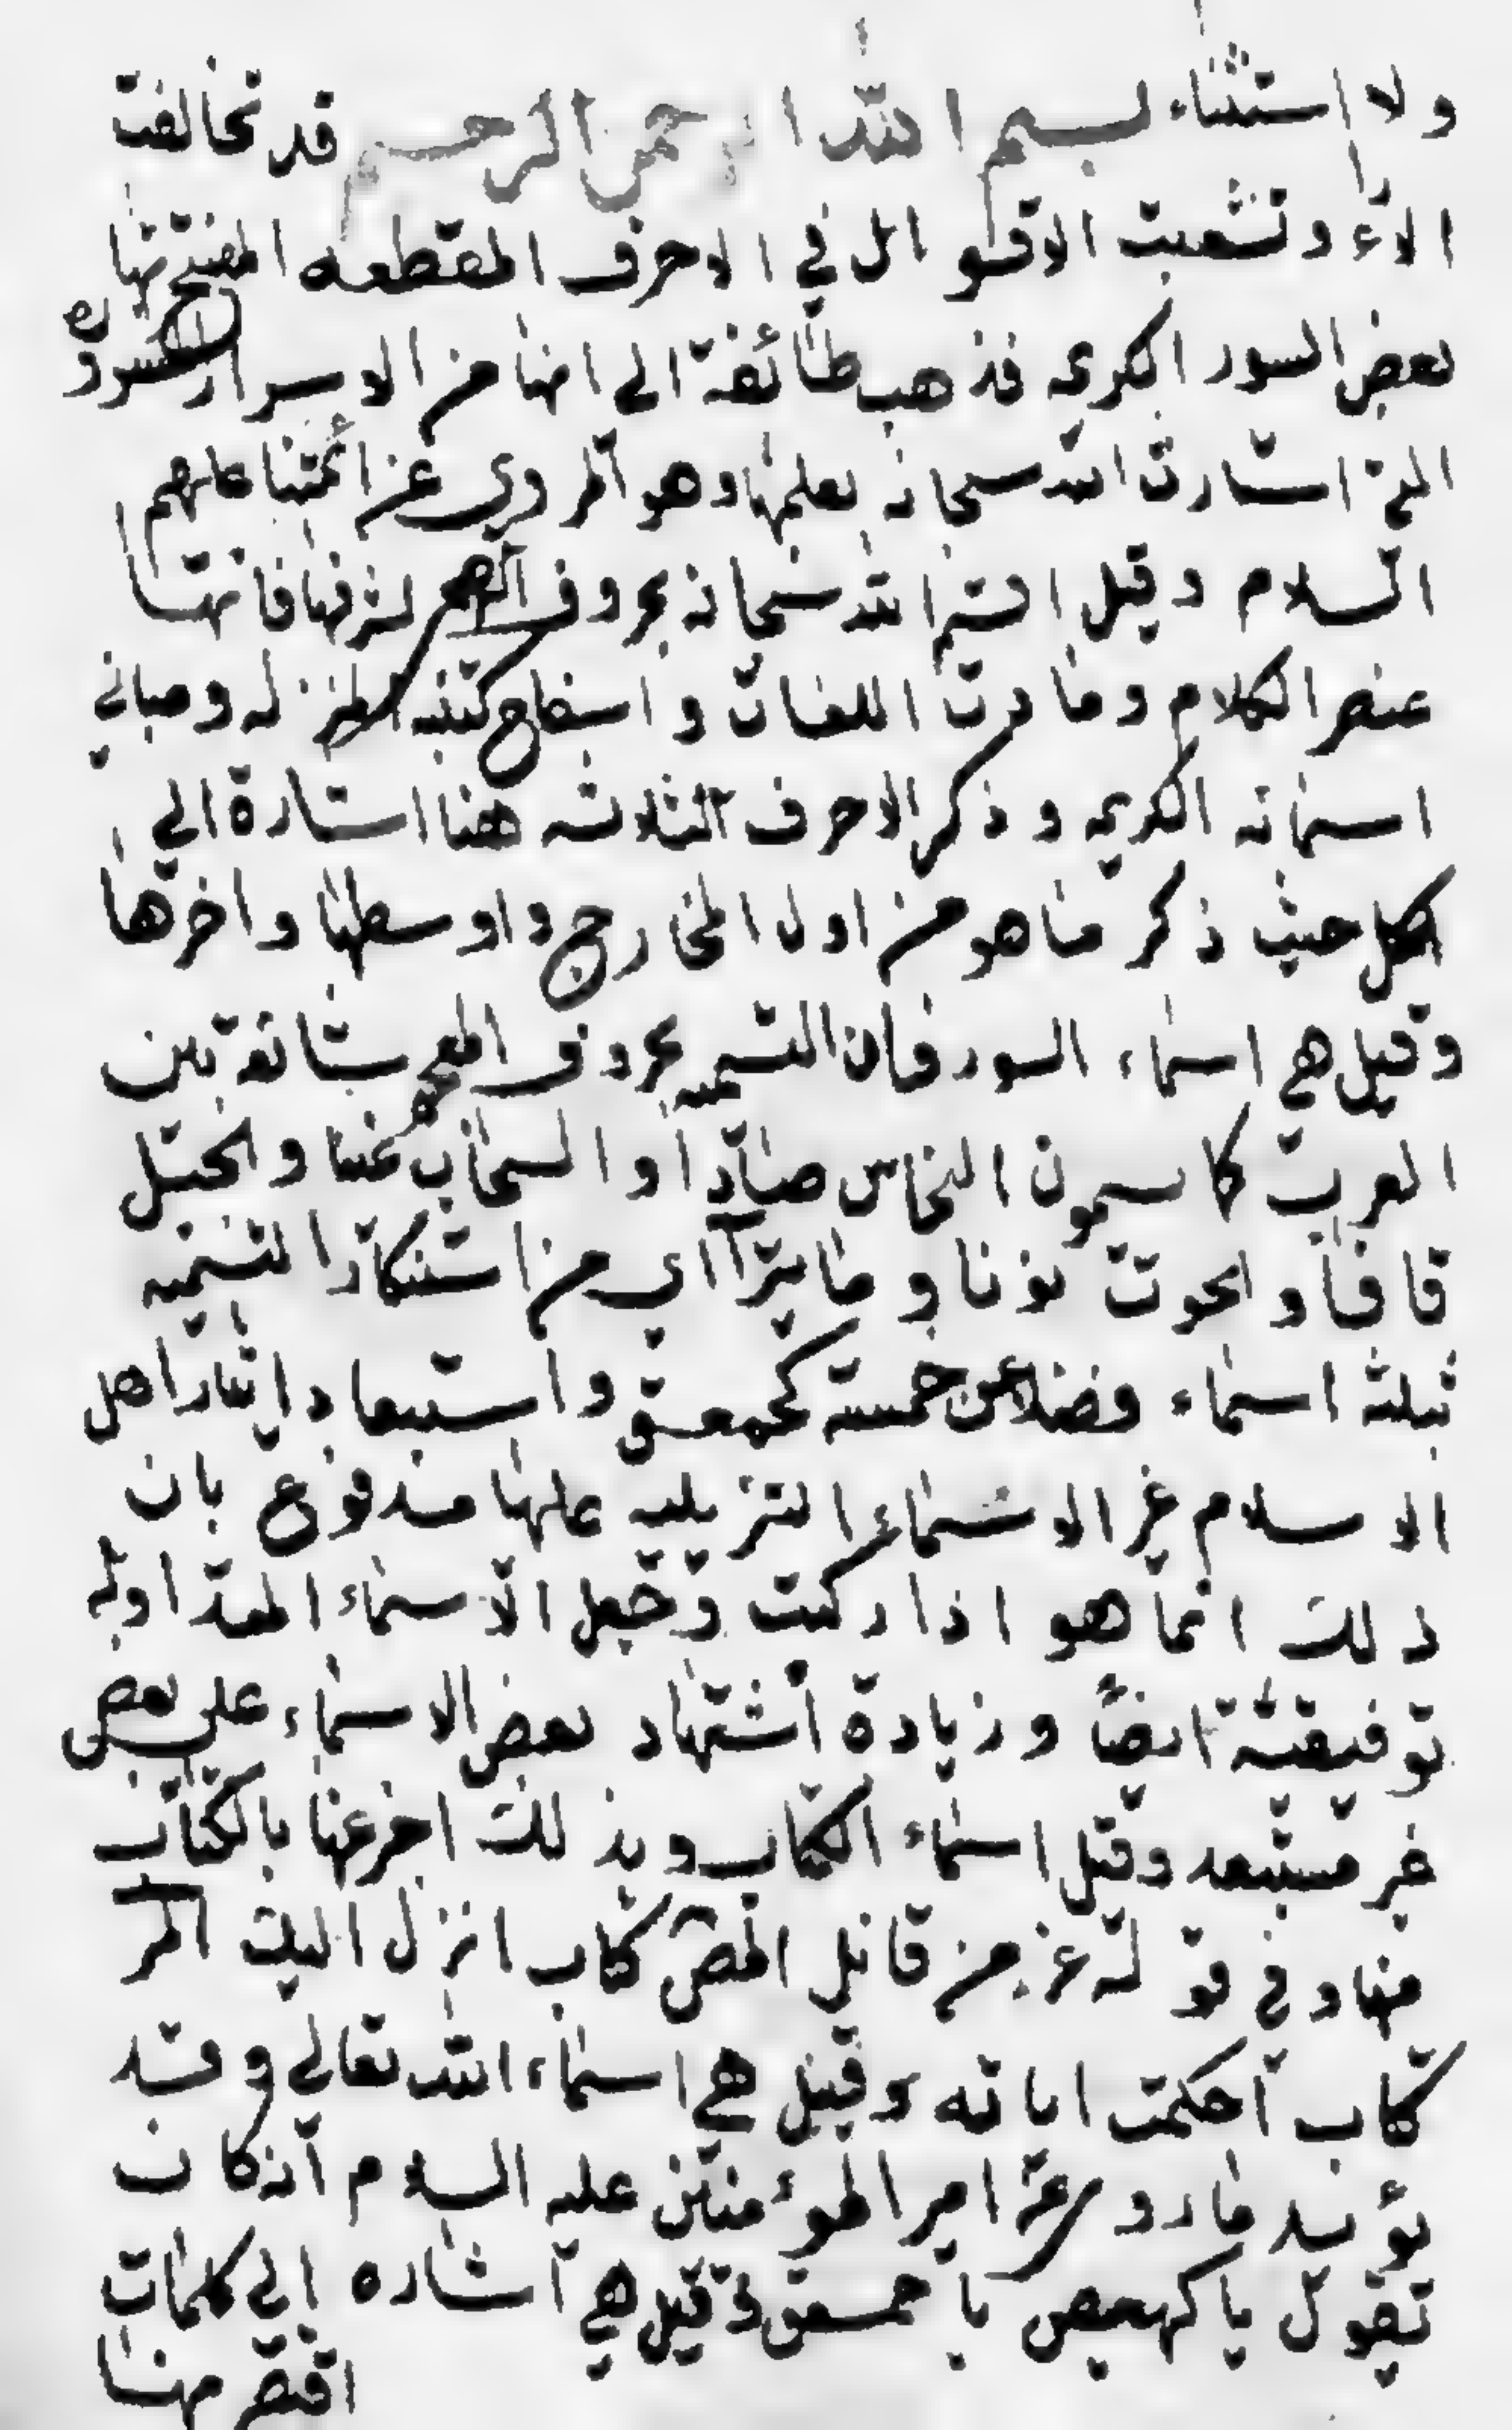 ولا استثناء بسم الله الرحمن الرحيم قد تخالفت
الآراء وتشعبت الاقوال في الاحرف المقطعه المفتتح بها
بعض السور الكريمه فذهب طائفة الى انها من الاسرار
التي استأثر الله سبحانه بعلمها وهو المروي عن أئمتنا عليهم
السلام وقيل اقسم الله سبحانه بحروف المعجم لشرفها فانها
عنصر الكلام ومادة اللغات و كتبه المنزله ومباني
اسمائه الكريمه وذكر الاحرف الثلاثه هنا اشارة الى
الكل حيث ذكر ما هو من اول المخارج واوسطها واخرها
وقيل هي اسماء السور فان التسميه بحروف المعجم شائعة بين
العرب كما يسمون النحاس صادا والسحاب غينا والجبل
قافا والحوت نونا وما يترآاى من استنكار التسميه
بثلثة اسماء فضلا عن خمسة كحمعسق واستبعاد ايثار اهل
الاسلام غير الاسماء التنزيليه عليها مدفوع بان
ذلك انما هو اذا ركبت وجعل الاسماء المتداوله
توقيفية ايضاً وزيادة اشتهار بعض الاسماء على بعض
غير مستبعد وقيل اسماء الكتاب وبذلك اخبر عنها بالكتاب
منها وفي قوله عز من قائل المص كتاب انزل اليك الر
كتاب احكمت اياته وقيل هي اسماء الله تعالى وقد
يؤيد ما روي عن امير المؤمنين عليه السلام انه كان
يقول يا كهيعص يا حمعسق وقيل هي اشاره الى كلمات
اقتصر منها